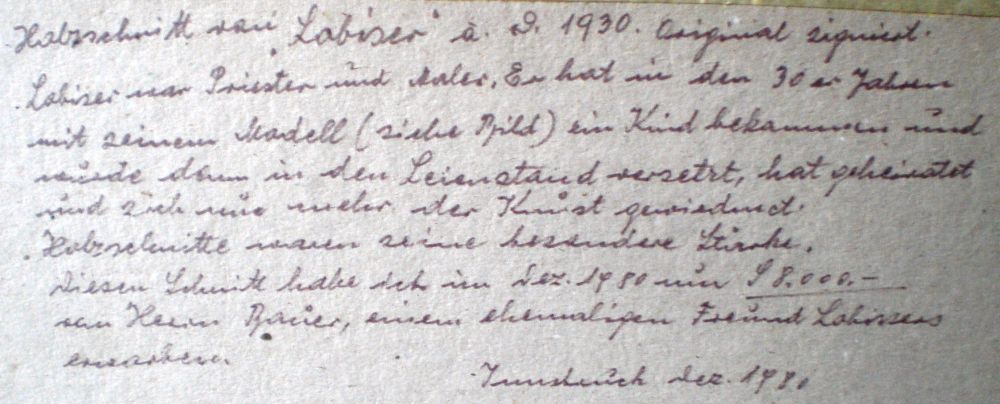 Holzschnitt von "Lobiser" a. D. 1930. Original signiert.
Lobiser war Priester und Maler. Er hat in den 30er Jahren
mit seinem Modell (siehe Bild) ein Kind bekommen und
wurde dann in den Leienstand versetzt, hat geheiratet
und sich nur mehr der Kunst gewiedmet.
Holzschnitte waren seine besondere Stärke.
Diesen Schnitt habe ich im Dez. 1980 um S 8.000.-
von Herrn Bauer, einem ehemaligen Freund Lobissers
erworben.
Innsbruck Dez. 1980